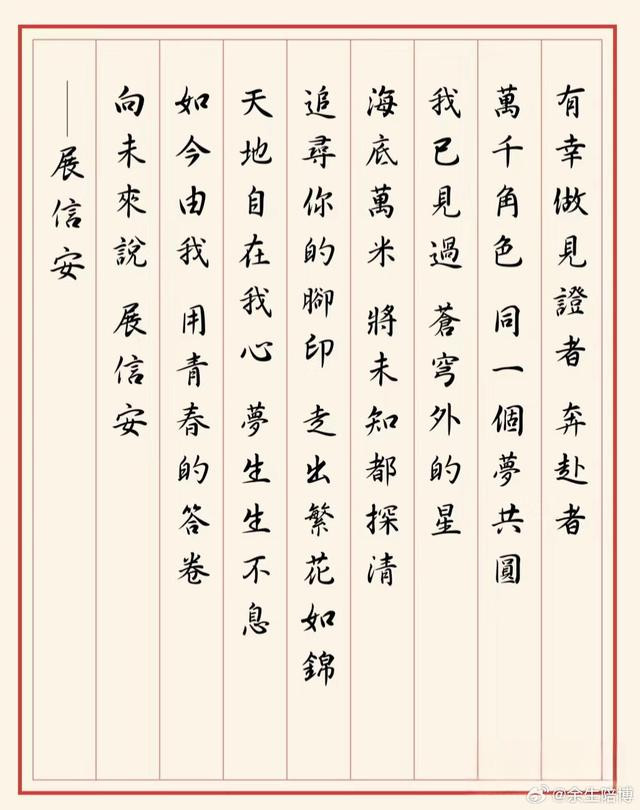 有幸做見證者 奔赴者
萬千角色 同一個夢共圓
我已見過 蒼穹外的星
海底萬米 將未知都探清
追尋你的腳印 走出繁花如錦
天地自在我心 夢生生不息
如今由我 用青春的答卷
向未來說 展信安
——展信安
@余生陪博